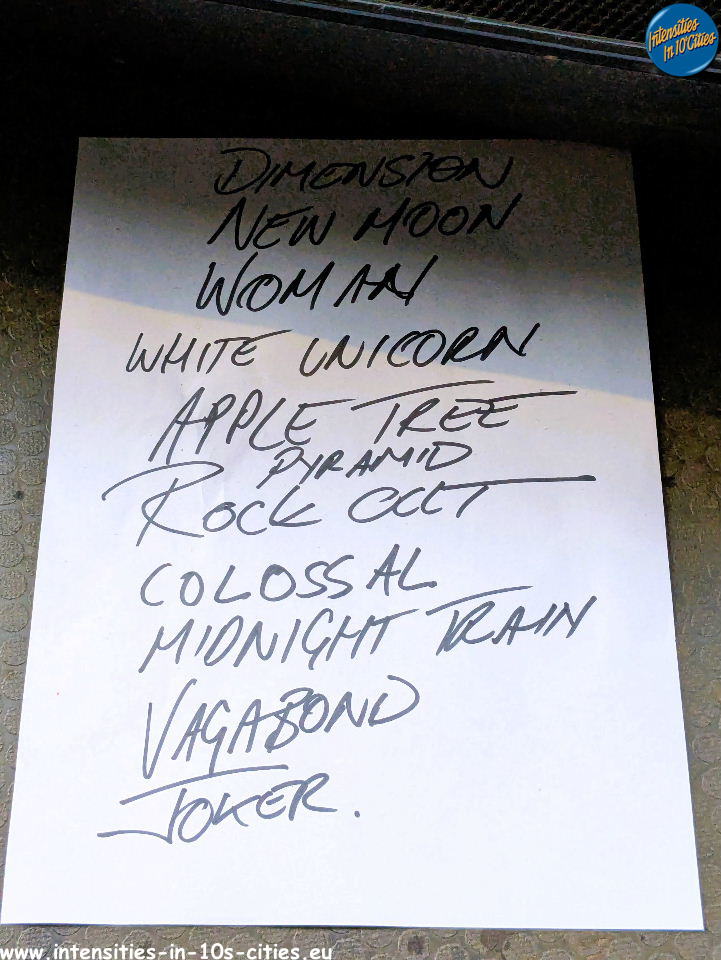 Intensities
In 10's Cities
DIMENSION
NEW MOON
WOMAN
WHITE UNICORN
APPLE TREE
PYRAMID
ROCK OUT
COLOSSAL
MIDNIGHT TRAIN
VAGABOND
JOKER.
www.intensities-in-10s-cities.eu